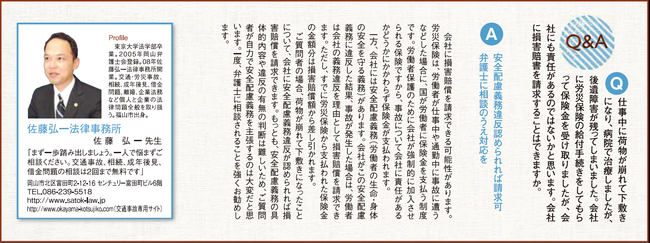 Q&A
Q 仕事中に荷物が崩れて下敷き
になり、病院で治療しましたが、
後遺障害が残ってしまいました。会社
に労災保険の給付手続きをしてもら
って保険金を受け取りましたが、会
社にも責任があるのではないかと思います。会社
に損害賠償を請求することはできますか。
A 安全配慮義務違反認められれば請求可
弁護士に相談のうえ対応を
会社に損害賠償を請求できる可能性があります。
労災保険は、労働者が仕事中や通勤中に事故に遭う
などした場合に、国が労働者に保険金を支払う制度
です。労働者保護のために会社が強制的に加入させ
られる保険ですから、事故について会社に責任がある
かどうかにかかわらず保険金が支払われます。
一方、会社には安全配慮義務（労働者の生命・身体
の安全を守る義務）があります。会社がこの安全配慮
義務に違反した結果、事故が発生した場合は、労働者
は会社の義務違反を理由として損害賠償を請求でき
ます。ただし、すでに労災保険から支払われた保険金
の金額分は損害賠償額から差し引かれます。
ご質問者の場合、荷物が崩れて下敷きになったこと
について、会社に安全配慮義務違反が認められれば損
害賠償を請求できます。もっとも、安全配慮義務の具
体的内容や違反の有無の判断は難しいため、ご質問
者が自力で安全配慮義務を主張するのは大変だと思
います。一度、弁護士に相談されることを強くお勧めし
ます。
Profile
東京大学法学部卒
業。2005年岡山弁
護士会登録。08年佐
藤弘一法律事務所開
業。交通・労災事故、
相続、成年後見、借金
問題、離婚、企業法務
など個人と企業の法
律問題全般を取り扱
う。福山市出身。
佐藤弘一法律事務所
佐藤 弘一 先生
「まず一歩踏み出しましょう。一人で悩まずご
相談ください。交通事故、相続、成年後見、
借金問題の相談は2回まで無料です」
岡山市北区富田町2-12-16 センチュリー富田町ビル6階
TEL,086-239-5518
http://www.satok-law.jp
http://www.okayama-kotsujiko.com（交通事故専用サイト）